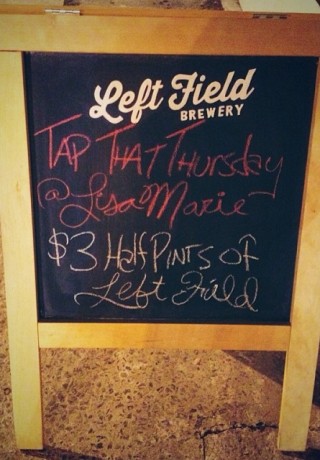 Left Field
BREWERY
TAP THAT THURSDAY
@ Lisa Marie
$3 Half PINTS OF
Left Field